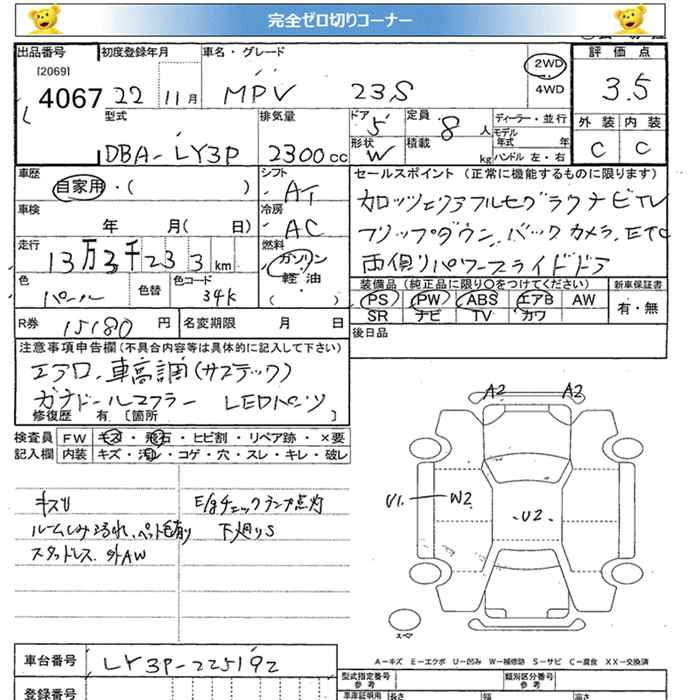 完全ゼロ切りコーナー
出品番号 初度登録年月 車名・グレード 評価点
[2069]
4067 22 11月 MPV 23S 2WD 4WD 3.5
型式 排気量 ドア 5 定員 8人 ディーラー・並行 外装 内装
モデル年式 年
DBA-LY3P 2300cc 形状 W 積載 kg ハンドル 左・右 C C
車歴 シフト セールスポイント (正常に機能するものに限ります)
自家用・( ) AT カロッツェリアフルセグラクナビTV
車検 冷房 フリップダウン、バックカメラ、ETC
年 月( 日) AC 両側パワースライドドア
走行 燃料
13万3千233km ガソリン 軽油 ( )
装備品 (純正品に限り○をつけてください) 新車保証書
色 色替 色コード PS PW ABS エアB AW 有・無
パール 34K SR ナビ TV カワ
R券 15180円 名変期限 月 日 後日品
注意事項申告欄(不具合内容等は具体的に記入して下さい)
エアロ、車高調(サステック)
ガナドールマフラー LEDパーツ
修復歴 有 〔箇所 〕
検査員 FW キズ・飛石・ヒビ割・リペア跡・×要
記入欄 内装 キズ・汚レ・コゲ・穴・スレ・キレ・破レ
キズU E/gチェックランプ点灯
ルームしみよごれ、ペット毛有り 下廻りS
スタッドレス、外AW
A2 A2
U1 W2 U2
スペア
A-キズ E-エクボ U-凹み W-補修跡 S-サビ C-腐食 XX-交換済
車台番号 LY3P-225192
型式指定番号 参考 類別区分番号 参考
登録番号 車庫証明用 長さ 幅 高さ